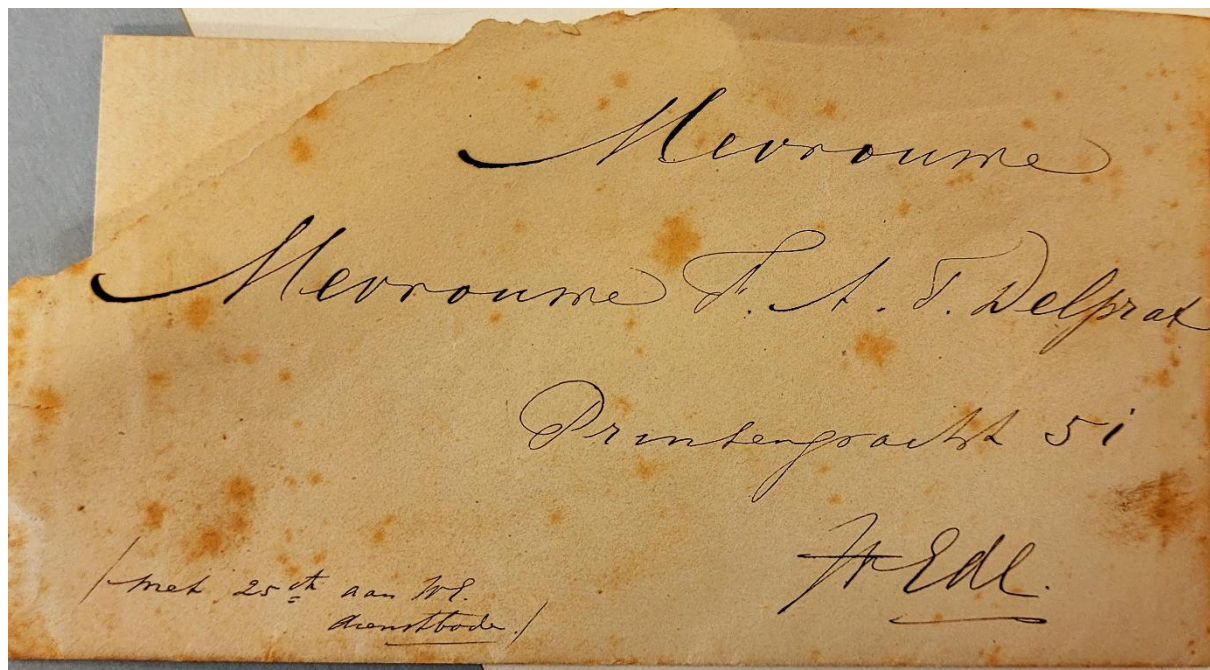 Mevrouwe
Mevrouwe F. A. T. Delprat
Prinsengracht 51
Hr Edl.
/met 25 cts aan WE.
dienstbode./